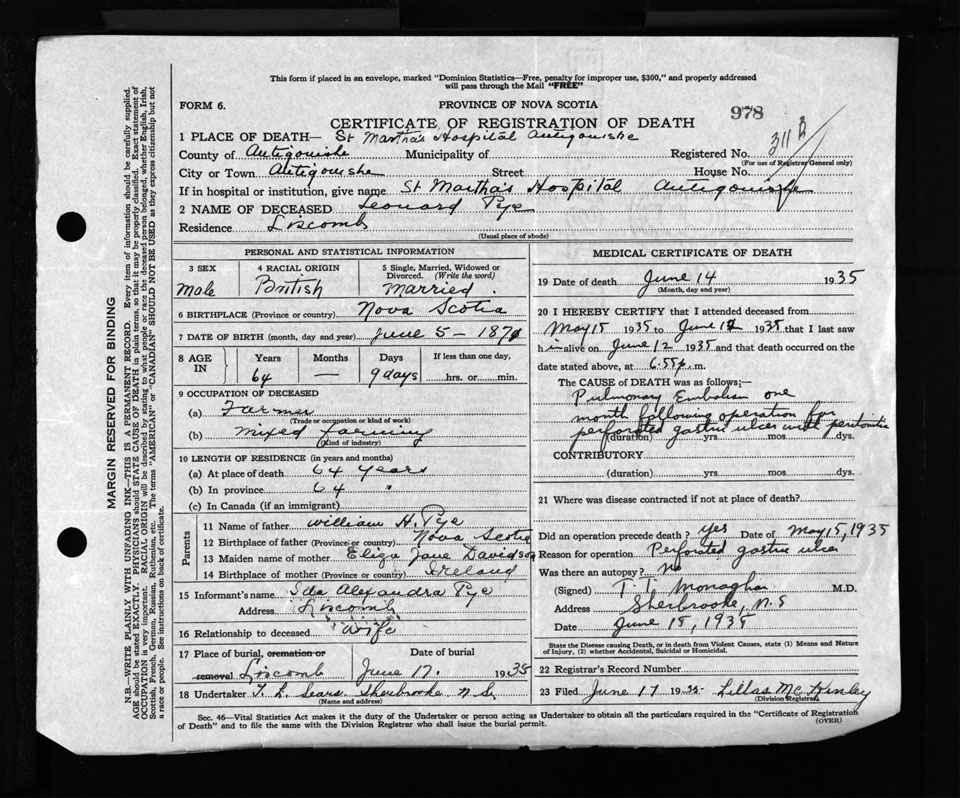 This form if placed in an envelope, marked "Dominion Statistics—Free, penalty for improper use, $300," and properly addressed
will pass through the Mail "FREE"
FORM 6.
PROVINCE OF NOVA SCOTIA
978
CERTIFICATE OF REGISTRATION OF DEATH
311 B
1 PLACE OF DEATH— St Martha's Hospital Antigonishe
County of Antigonishe Municipality of Registered No.
(For use of Registrar General only)
City or Town Antigonishe Street House No.
If in hospital or institution, give name St Martha's Hospital Antigonishe
2 NAME OF DECEASED Leonard Pye
Residence Liscomb
(Usual place of abode)
PERSONAL AND STATISTICAL INFORMATION
3 SEX 4 RACIAL ORIGIN 5 Single, Married, Widowed or
Divorced. (Write the word)
Male British Married.
6 BIRTHPLACE (Province or country) Nova Scotia
7 DATE OF BIRTH (month, day and year) June 5 - 1871
8 AGE IN Years Months Days If less than one day,
64 — 9 days hrs. or min.
9 OCCUPATION OF DECEASED
(a) Farmer
(Trade or occupation or kind of work)
(b) mixed farming
(Kind of industry)
10 LENGTH OF RESIDENCE (in years and months)
(a) At place of death 64 years
(b) In province 64 "
(c) In Canada (if an immigrant)
Parents
11 Name of father William H. Pye
12 Birthplace of father (Province or country) Nova Scotia
13 Maiden name of mother Eliza Jane Davidson
14 Birthplace of mother (Province or country) Ireland
15 Informant's name Ida Alexandra Pye
Address Liscomb
16 Relationship to deceased wife
17 Place of burial, cremation or Date of burial
removal Liscomb June 17. 1935
18 Undertaker T. L. Sears. Sherbrooke N.S.
(Name and address)
MEDICAL CERTIFICATE OF DEATH
19 Date of death June 14 1935
(Month, day and year)
20 I HEREBY CERTIFY that I attended deceased from
May 15 1935 to June 12 1935 that I last saw
h im alive on June 12 1935 and that death occurred on the
date stated above, at 6.55 p. m.
The CAUSE OF DEATH was as follows;—
Pulmonary Embolism one
month following operation for
perforated gastric ulcer with peritonitis
(duration) yrs. mos. dys.
CONTRIBUTORY
(duration) yrs. mos. dys.
21 Where was disease contracted if not at place of death?
Did an operation precede death? Yes Date of May 15, 1935
Reason for operation Perforated gastric ulcer
Was there an autopsy? No
(Signed) T. T. Monaghan M.D.
Address Sherbrooke, N.S
Date June 15, 1935
State the Disease causing Death, or in death from Violent Causes, state (1) Means and Nature
of Injury, (2) whether Accidental, Suicidal or Homicidal.
22 Registrar's Record Number
23 Filed June 17 1935 Lillas McKinley
(Division Registrar)
Sec. 46—Vital Statistics Act makes it the duty of the Undertaker or person acting as Undertaker to obtain all the particulars required in the "Certificate of Registration
of Death" and to file the same with the Division Registrar who shall issue the burial permit.
(OVER)
MARGIN RESERVED FOR BINDING
N.B.—WRITE PLAINLY WITH UNFADING INK—THIS IS A PERMANENT RECORD. Every item of information should be carefully supplied.
AGE should be stated EXACTLY. PHYSICIANS should STATE CAUSE OF DEATH in plain terms, so that it may be properly classified. Exact statement of
OCCUPATION is very important. RACIAL ORIGIN will be described by stating to what people or race the deceased person belonged, whether English, Irish,
Scottish, French, German, Russian, Ruthenian, etc. The terms "AMERICAN" or "CANADIAN" SHOULD NOT BE USED as they express citizenship but not
a race or people. See instructions on back of certificate.